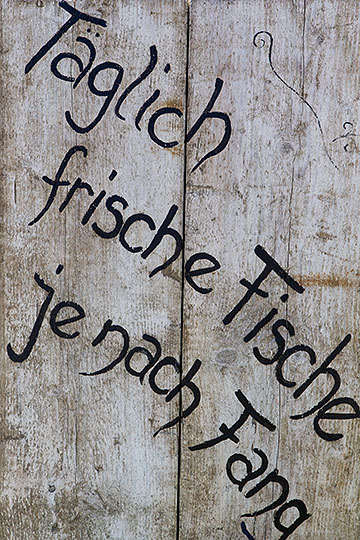 Täglich
frische Fische
je nach Fang